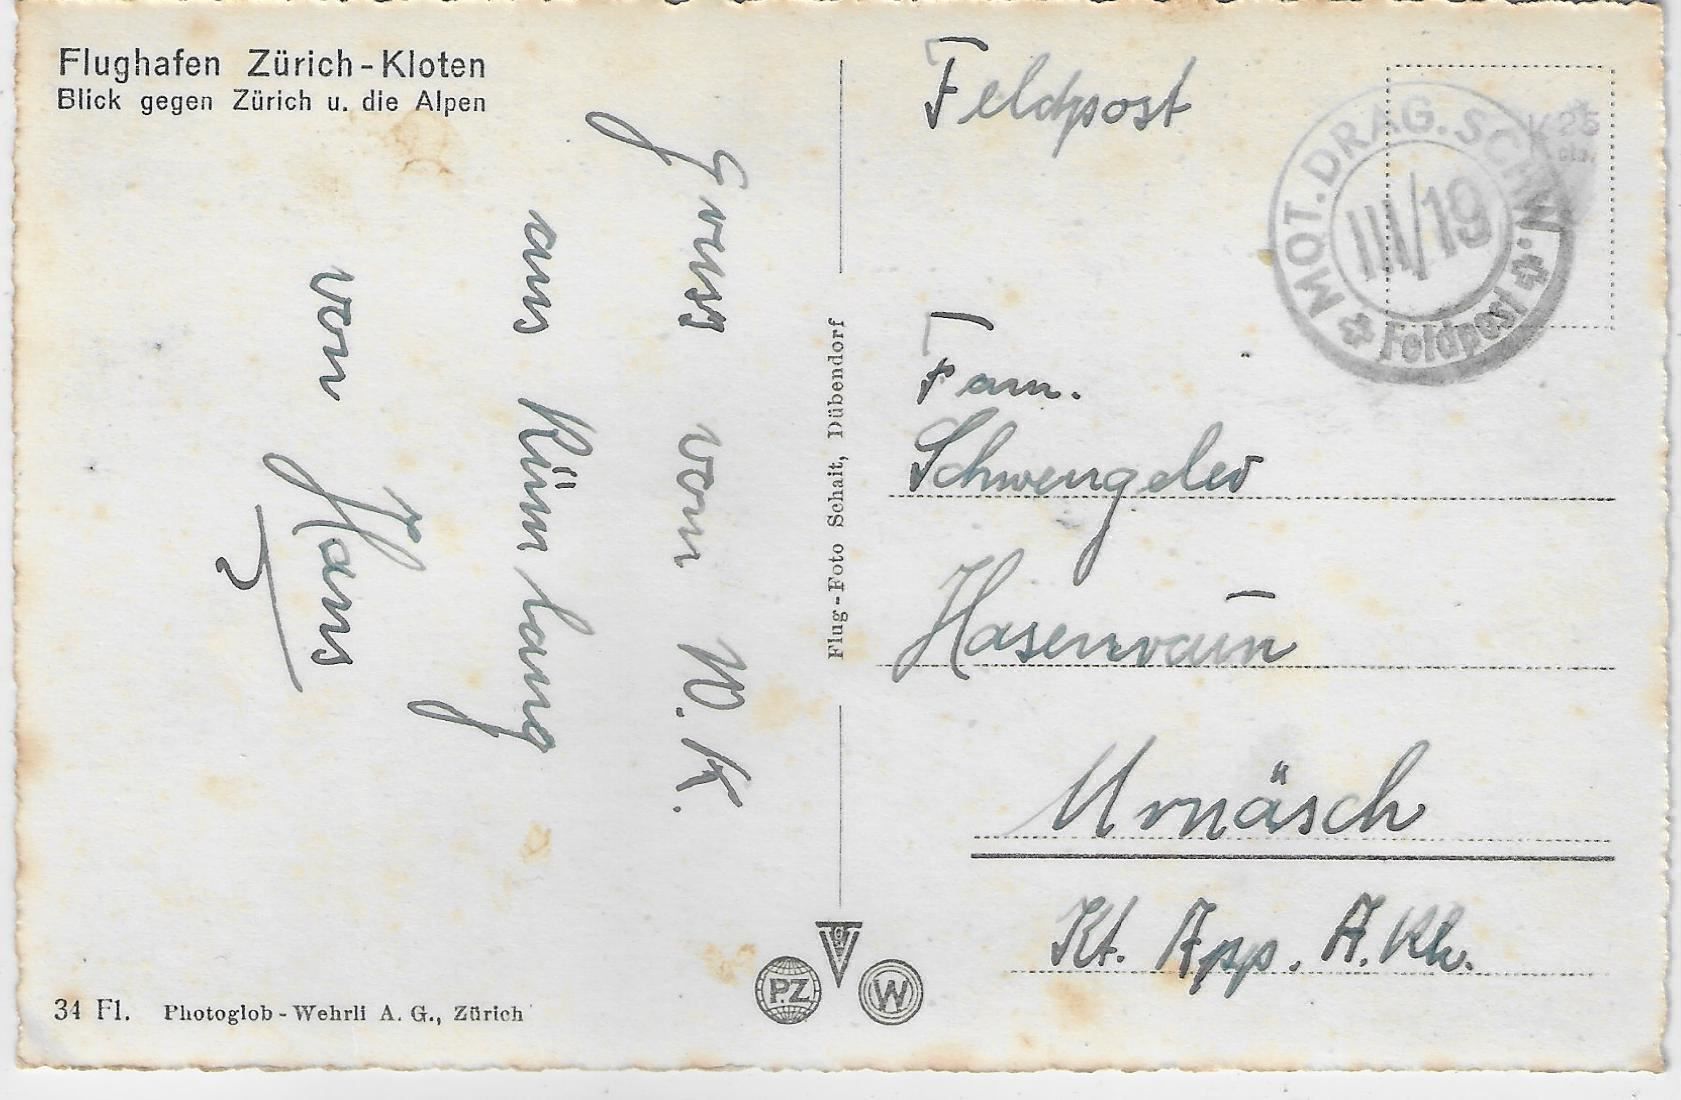 Flughafen Zürich-Kloten
Blick gegen Zürich u. die Alpen
Gruss vom W.K.
aus Rümlang
von Hans
34 Fl. Photoglob-Wehrli A. G., Zürich
Flug-Foto Schait, Dübendorf
PZ
W
Feldpost
MOT. DRAG. SCHW.
III/19
Feldpost
25
Fam.
Schwengeler
Hasenrain
Urnäsch
Kt. App. A.Rh.